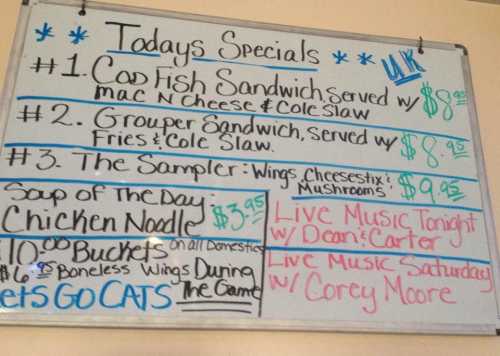 ** Todays Specials ** UK
#1. Cod Fish Sandwich, served w/
Mac N Cheese & Cole Slaw $8.95
#2. Grouper Sandwich, served w/
Fries & Cole Slaw. $8.95
#3. The Sampler: Wings, Cheesestix &
Mushrooms $9.95
Soup of The Day:
Chicken Noodle $3.95
10.00 Buckets on all Domestics
$6.95 Boneless Wings During
ets GO CATS The Game
Live Music Tonight
w/ Dean & Carter
Live Music Saturday
w/ Corey Moore